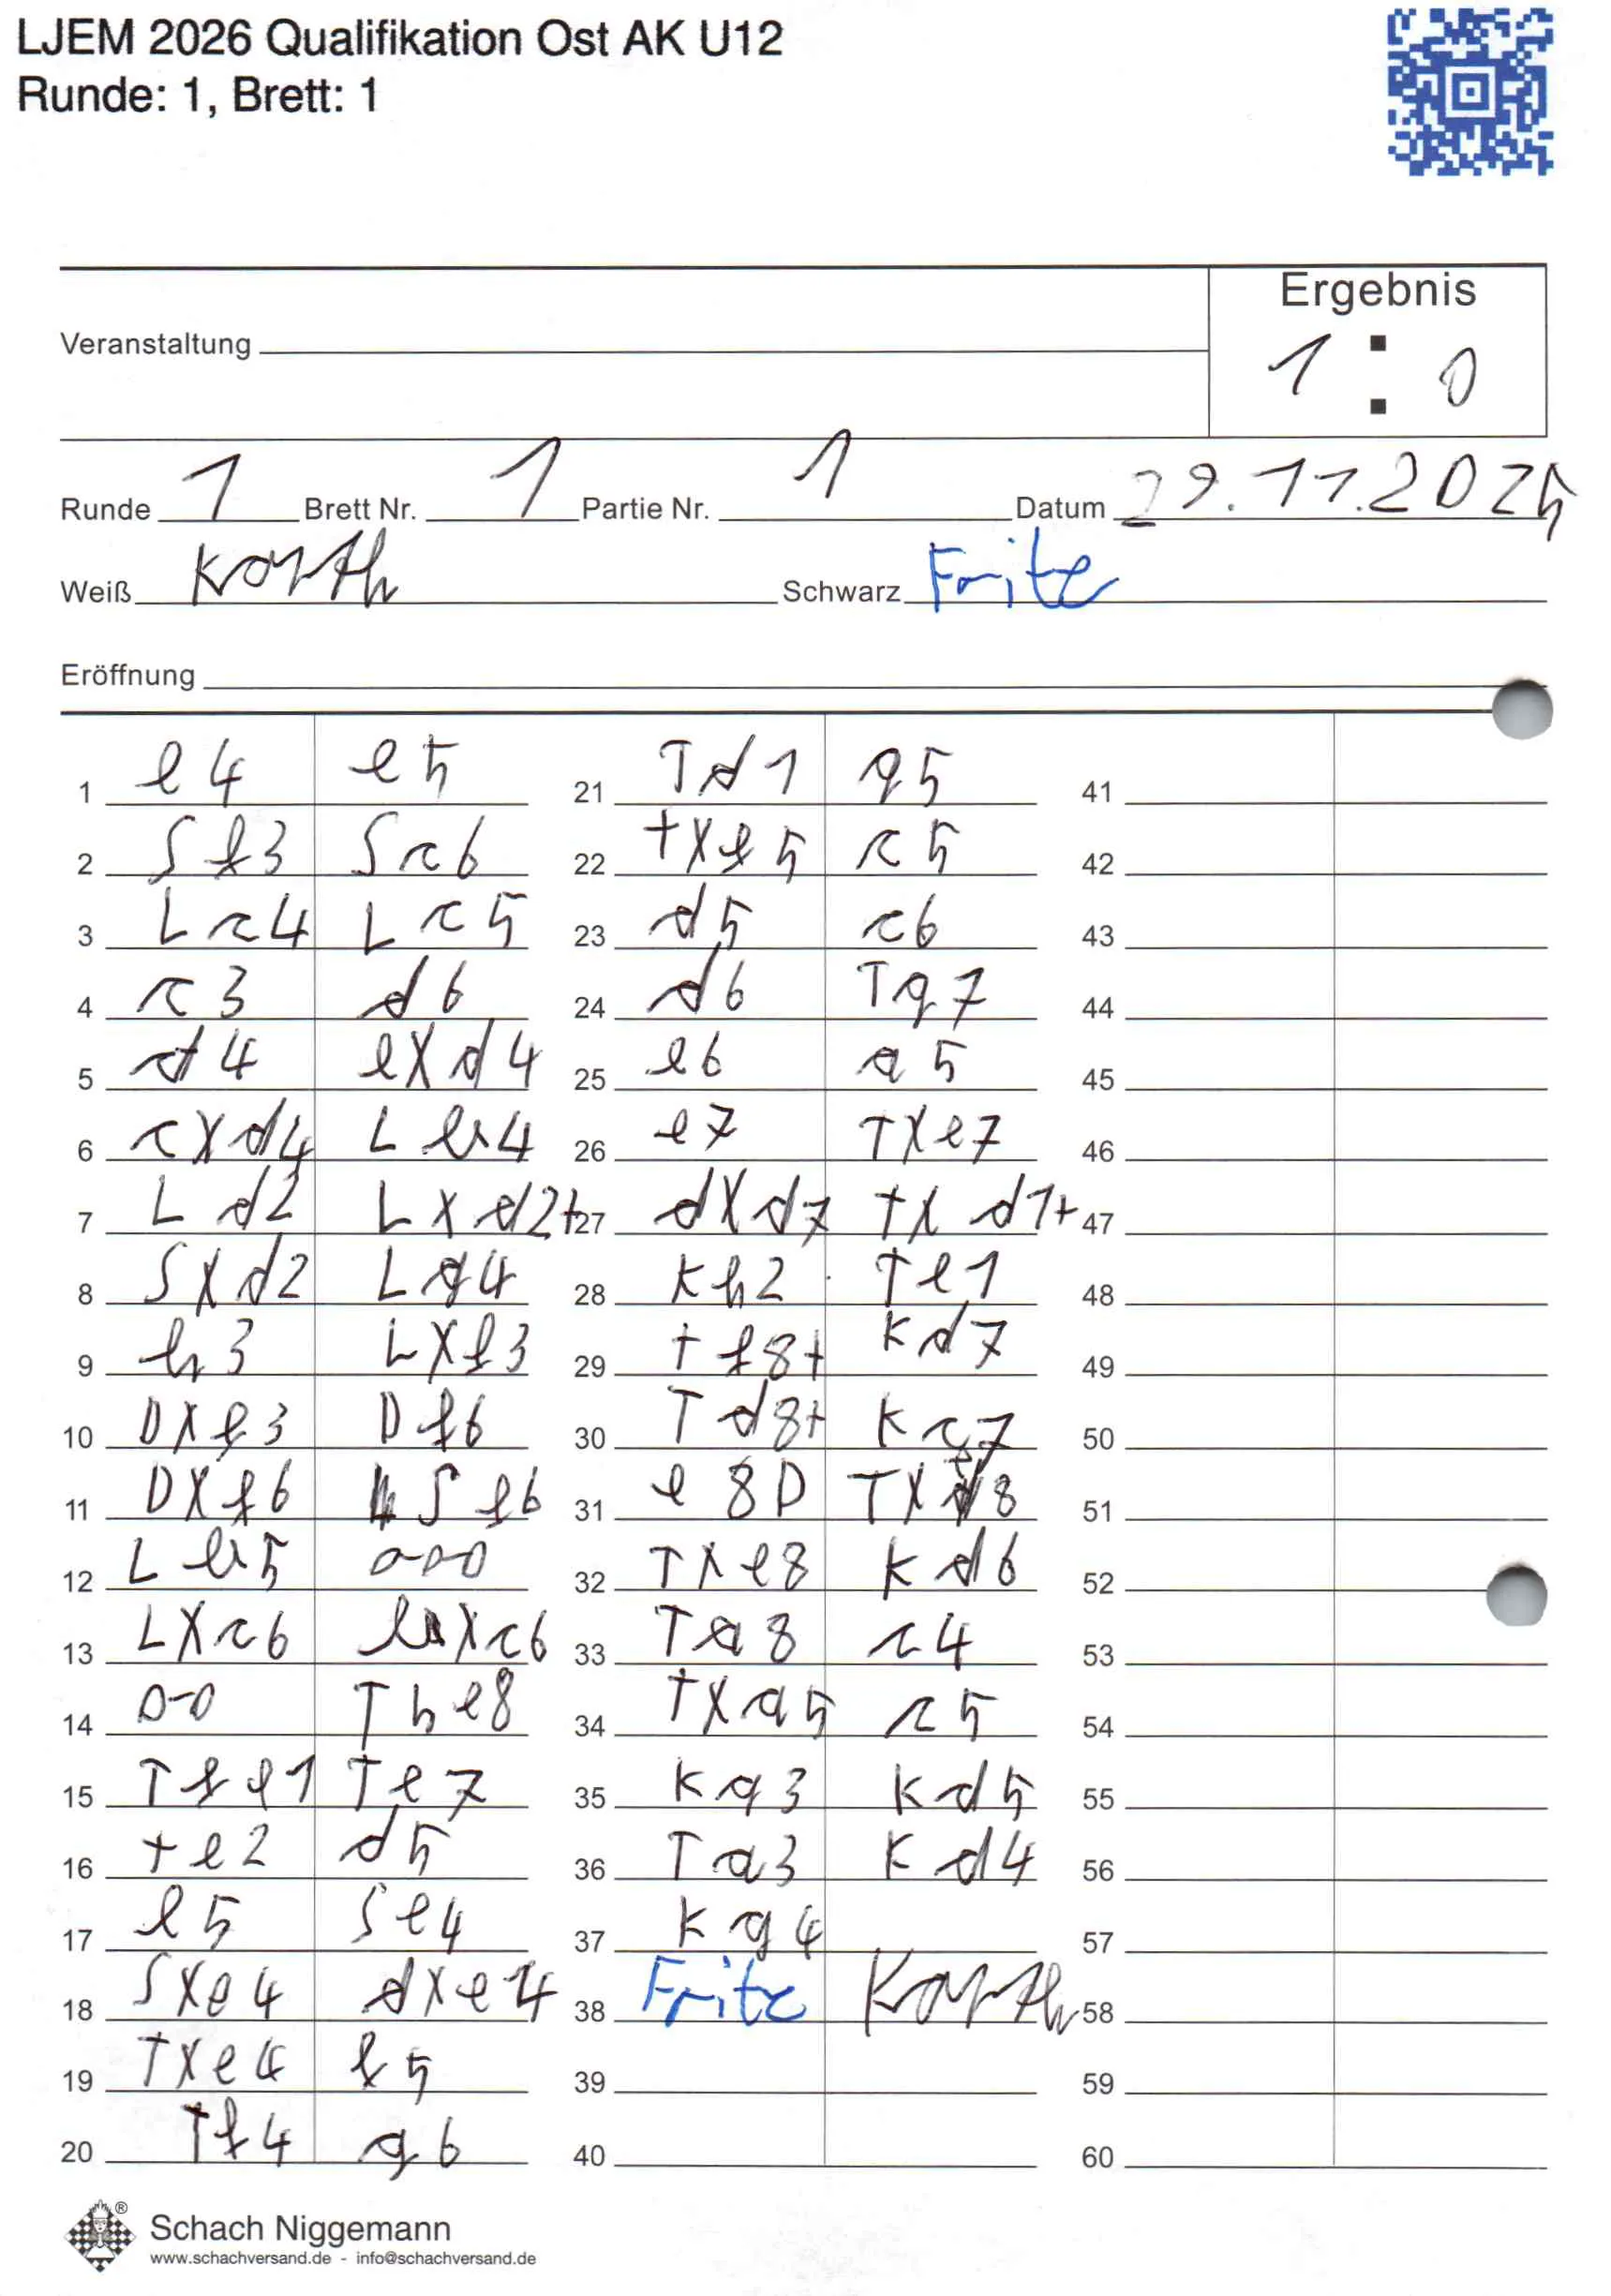 LJEM 2026 Qualifikation Ost AK U12
Runde: 1, Brett: 1
Ergebnis
Veranstaltung 1 : 0
Runde 1 Brett Nr. 1 Partie Nr. 1 Datum 29.11.2025
Weiß Korth Schwarz Fritz
Eröffnung
1 e4 e5 21 Td1 g5 41
2 Sf3 Sc6 22 Txf5 c5 42
3 Lc4 Lc5 23 d5 c6 43
4 c3 d6 24 d6 Tg7 44
5 d4 exd4 25 e6 a5 45
6 cxd4 Lb4 26 e7 Txe7 46
7 Ld2 Lxd2+ 27 dxd7 Txd1+ 47
8 Sxd2 Lg4 28 Kh2 Te1 48
9 h3 Lxf3 29 Tf8+ Kd7 49
10 Dxf3 Df6 30 Td8+ Kc7 50
11 Dxf6 Sf6 31 e8D Txe8 51
12 Lb5 0-0-0 32 Txe8 Kd6 52
13 Lxc6 bxc6 33 Ta8 c4 53
14 0-0 The8 34 Txa5 c5 54
15 Tfe1 Te7 35 Kg3 Kd5 55
16 Te2 d5 36 Ta3 Kd4 56
17 e5 Se4 37 Kg4 57
18 Sxe4 dxe4 38 Fritz Korth 58
19 Txe4 f5 39 59
20 Tf4 g6 40 60
Schach Niggemann
www.schachversand.de - info@schachversand.de